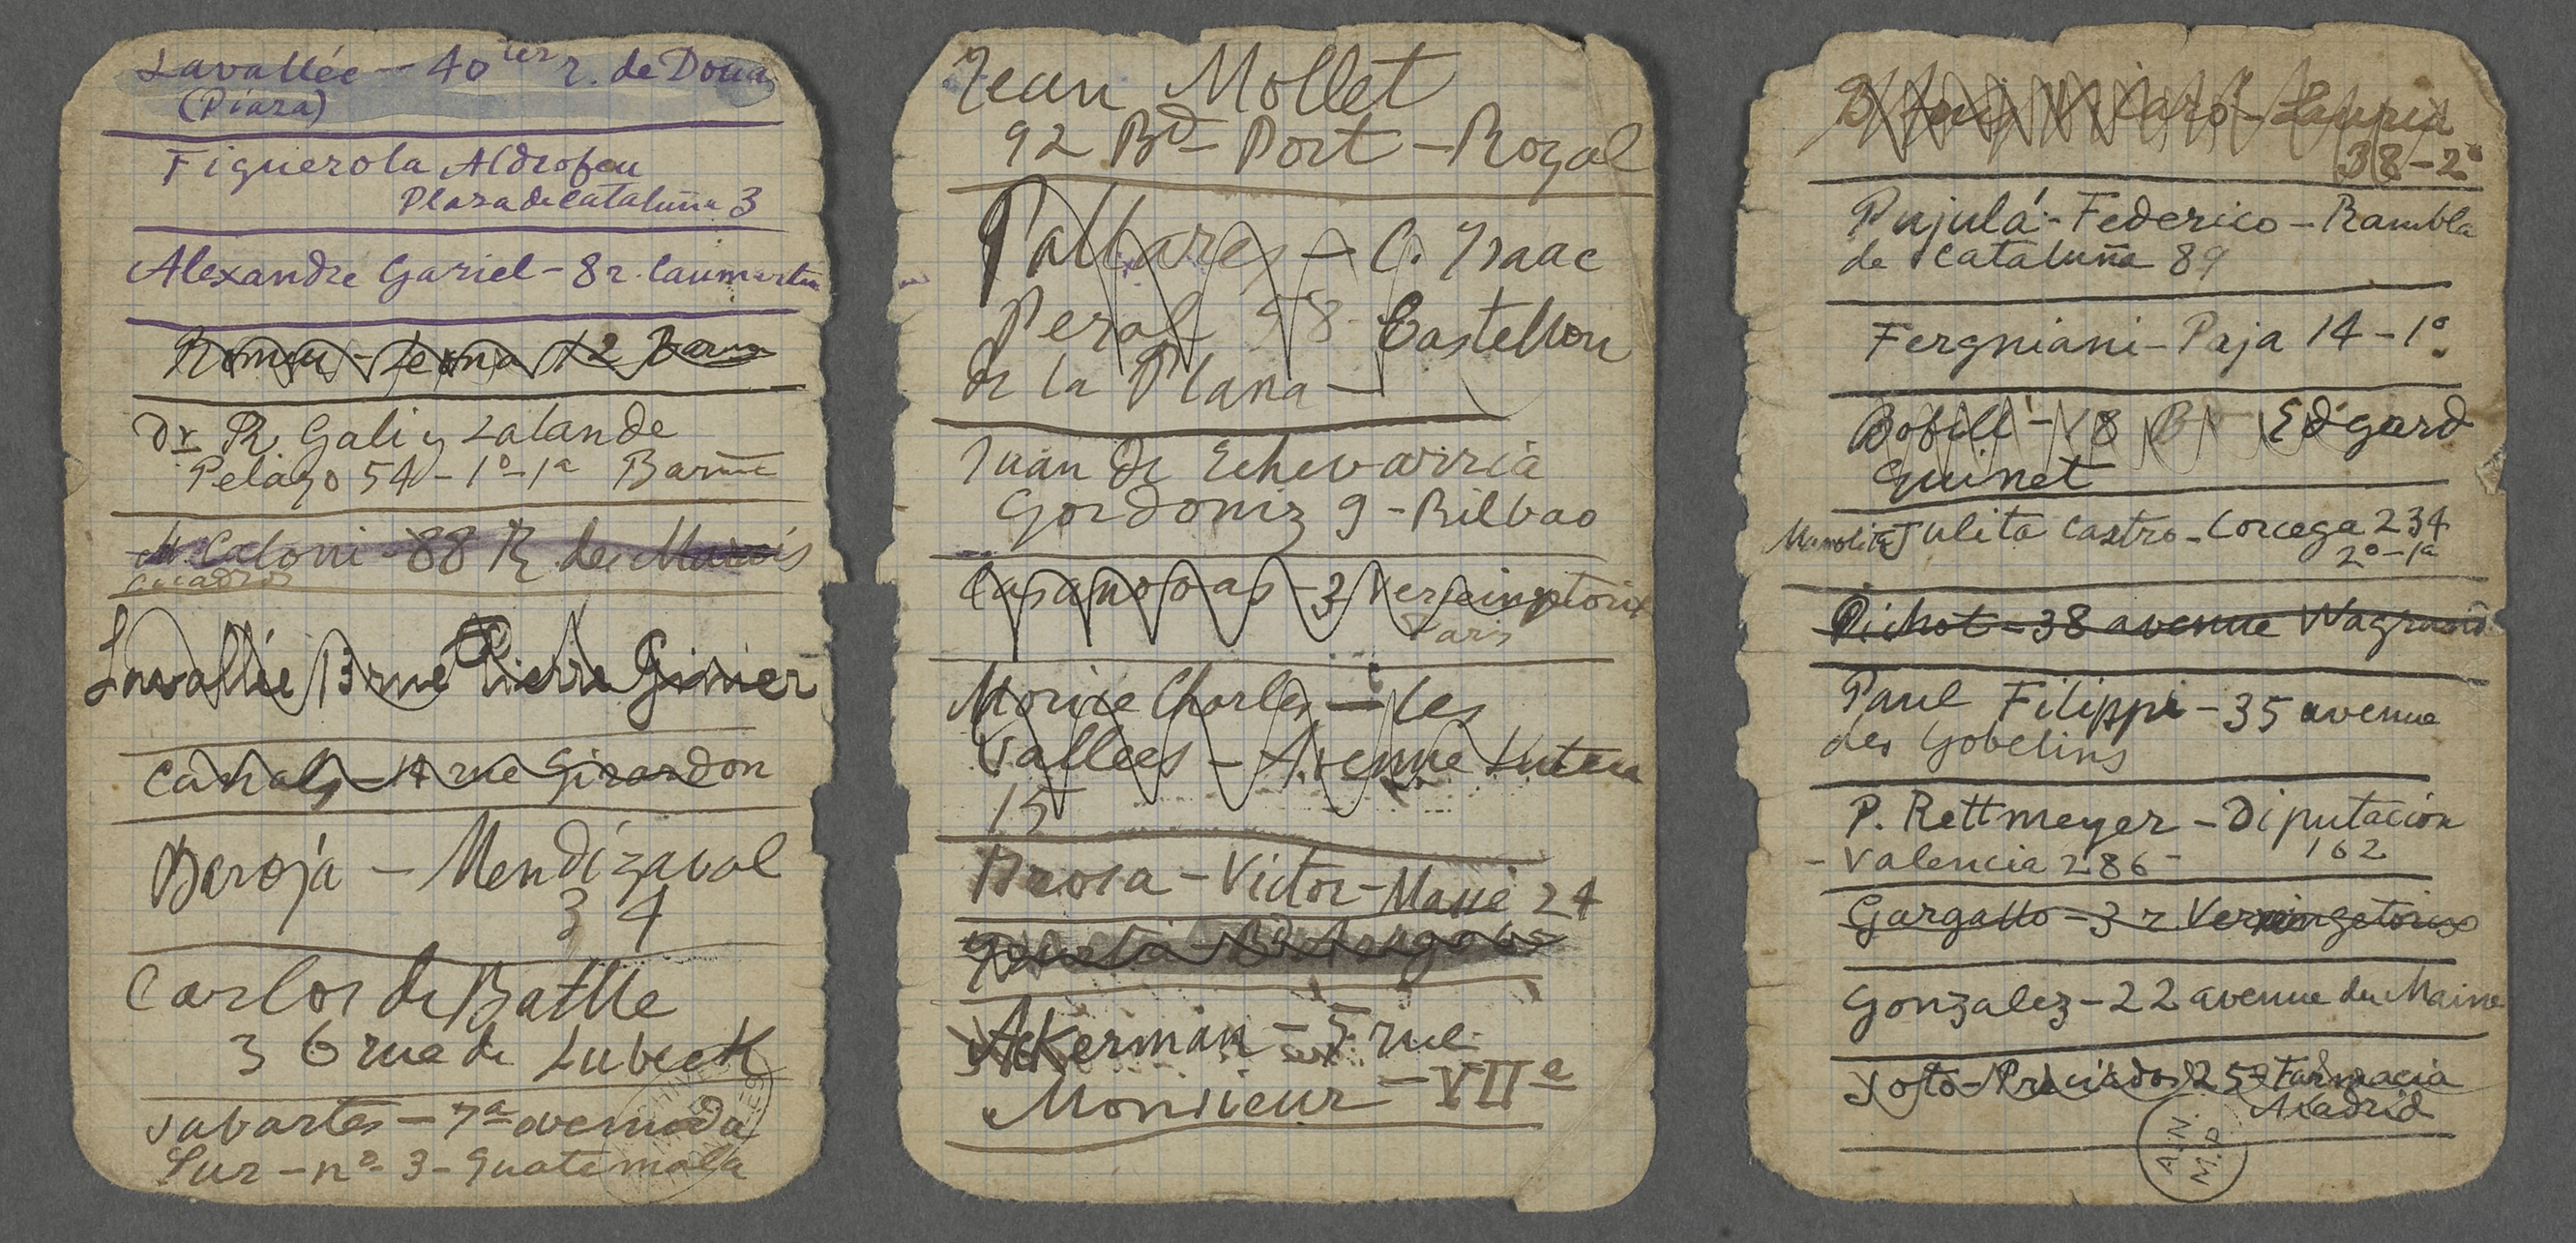 Lavallée — 40 ter r. de Doua
(Piaza)
Figuerola Aldrofeu
Plaza de Cataluña 3
Alexandre Gariel - 8 r. Caumartin
Romeu - 12
Dr. R. Gali y Lalande
Pelayo 54 - 1º - 1ª Barna
M. Caloni - 88 R. des Marais
cuadros
Lavallée 13 rue Pierre Ginier
Canals - 14 rue Girardon
Baroja — Mendizaval
34
Carlos de Batlle
36 rue de Lubeck
Sabartes - 7ª avenida
Sur - nº 3 - Guatemala
Jean Mollet
92 Bd - Port - Royal
Pallares - C. Isaac
Peral 58 Castellon
de la Plana —
Juan de Echevarria
Gordoniz 9 - Bilbao
Casanovas - 3 Vercingetorix
Paris
Morice Charles - les
Vallees - Avenue
15
Brosa - Victor - Massé 24
Bd Arago
Ackerman - 5 rue
Monsieur - VIIe
38 - 2º
Pujulá - Federico - Rambla
de Cataluña 89
Fergniani - Paja 14 - 1º
Bofill - 18 Bd Edgard
Guinet
Manolita Julita Castro - Corcega 234
2º - 1ª
Pichot - 38 avenue Wagram
Paul Filippi - 35 avenue
des Gobelins
P. Rettmeyer - Diputacion
162
- Valencia 286 -
Gargallo - 3 r Vercingetorix
Gonzalez - 22 avenue du Maine
Soto - Preciados 25 Farmacia
Madrid
A.N.
M.P.